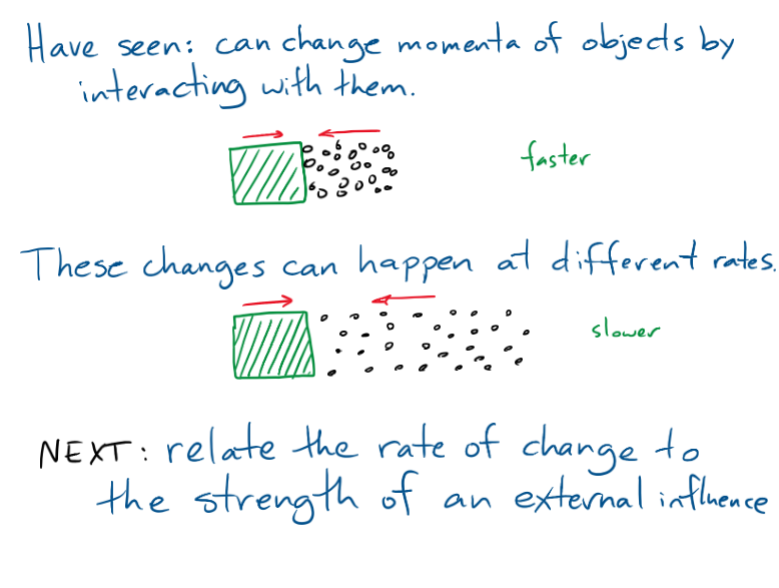 Have seen: can change momenta of objects by
interacting with them.
faster
These changes can happen at different rates.
slower
NEXT: relate the rate of change to
the strength of an external influence